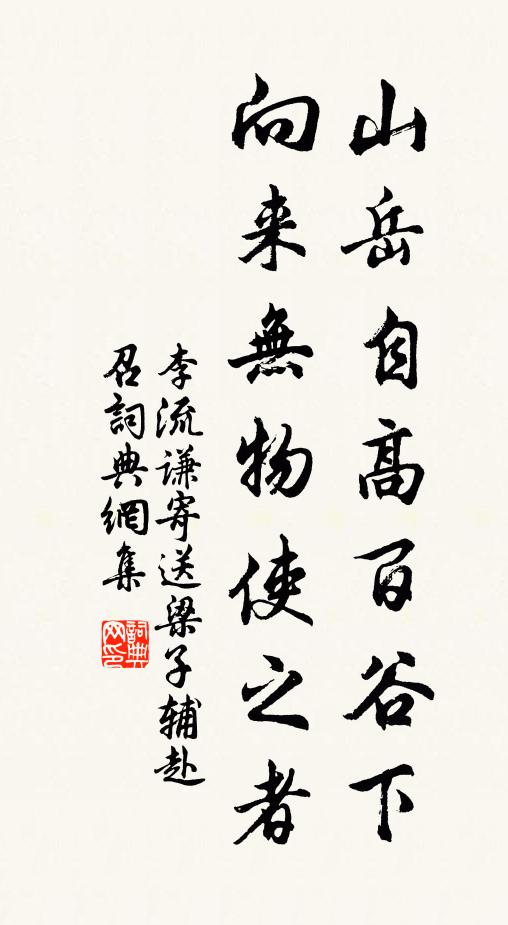 山岳自高百谷下
向来無物使之者
李流谦寄送梁子辅赴
召詞典網集
詞典网印